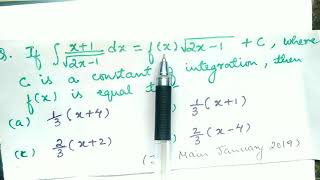 Q. If ∫ x+1/√2x-1 dx = f(x)√2x-1 + C, where
C is a constant of integration, then
f(x) is equal to
(a) 1/3 (x+4) 1/3 (x+1)
(c) 2/3 (x+2) 2/3 (x-4)
Main January 2019)